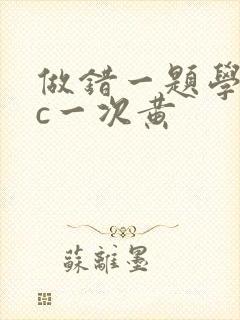 做錯一題學
c一次黃
蘇離墨